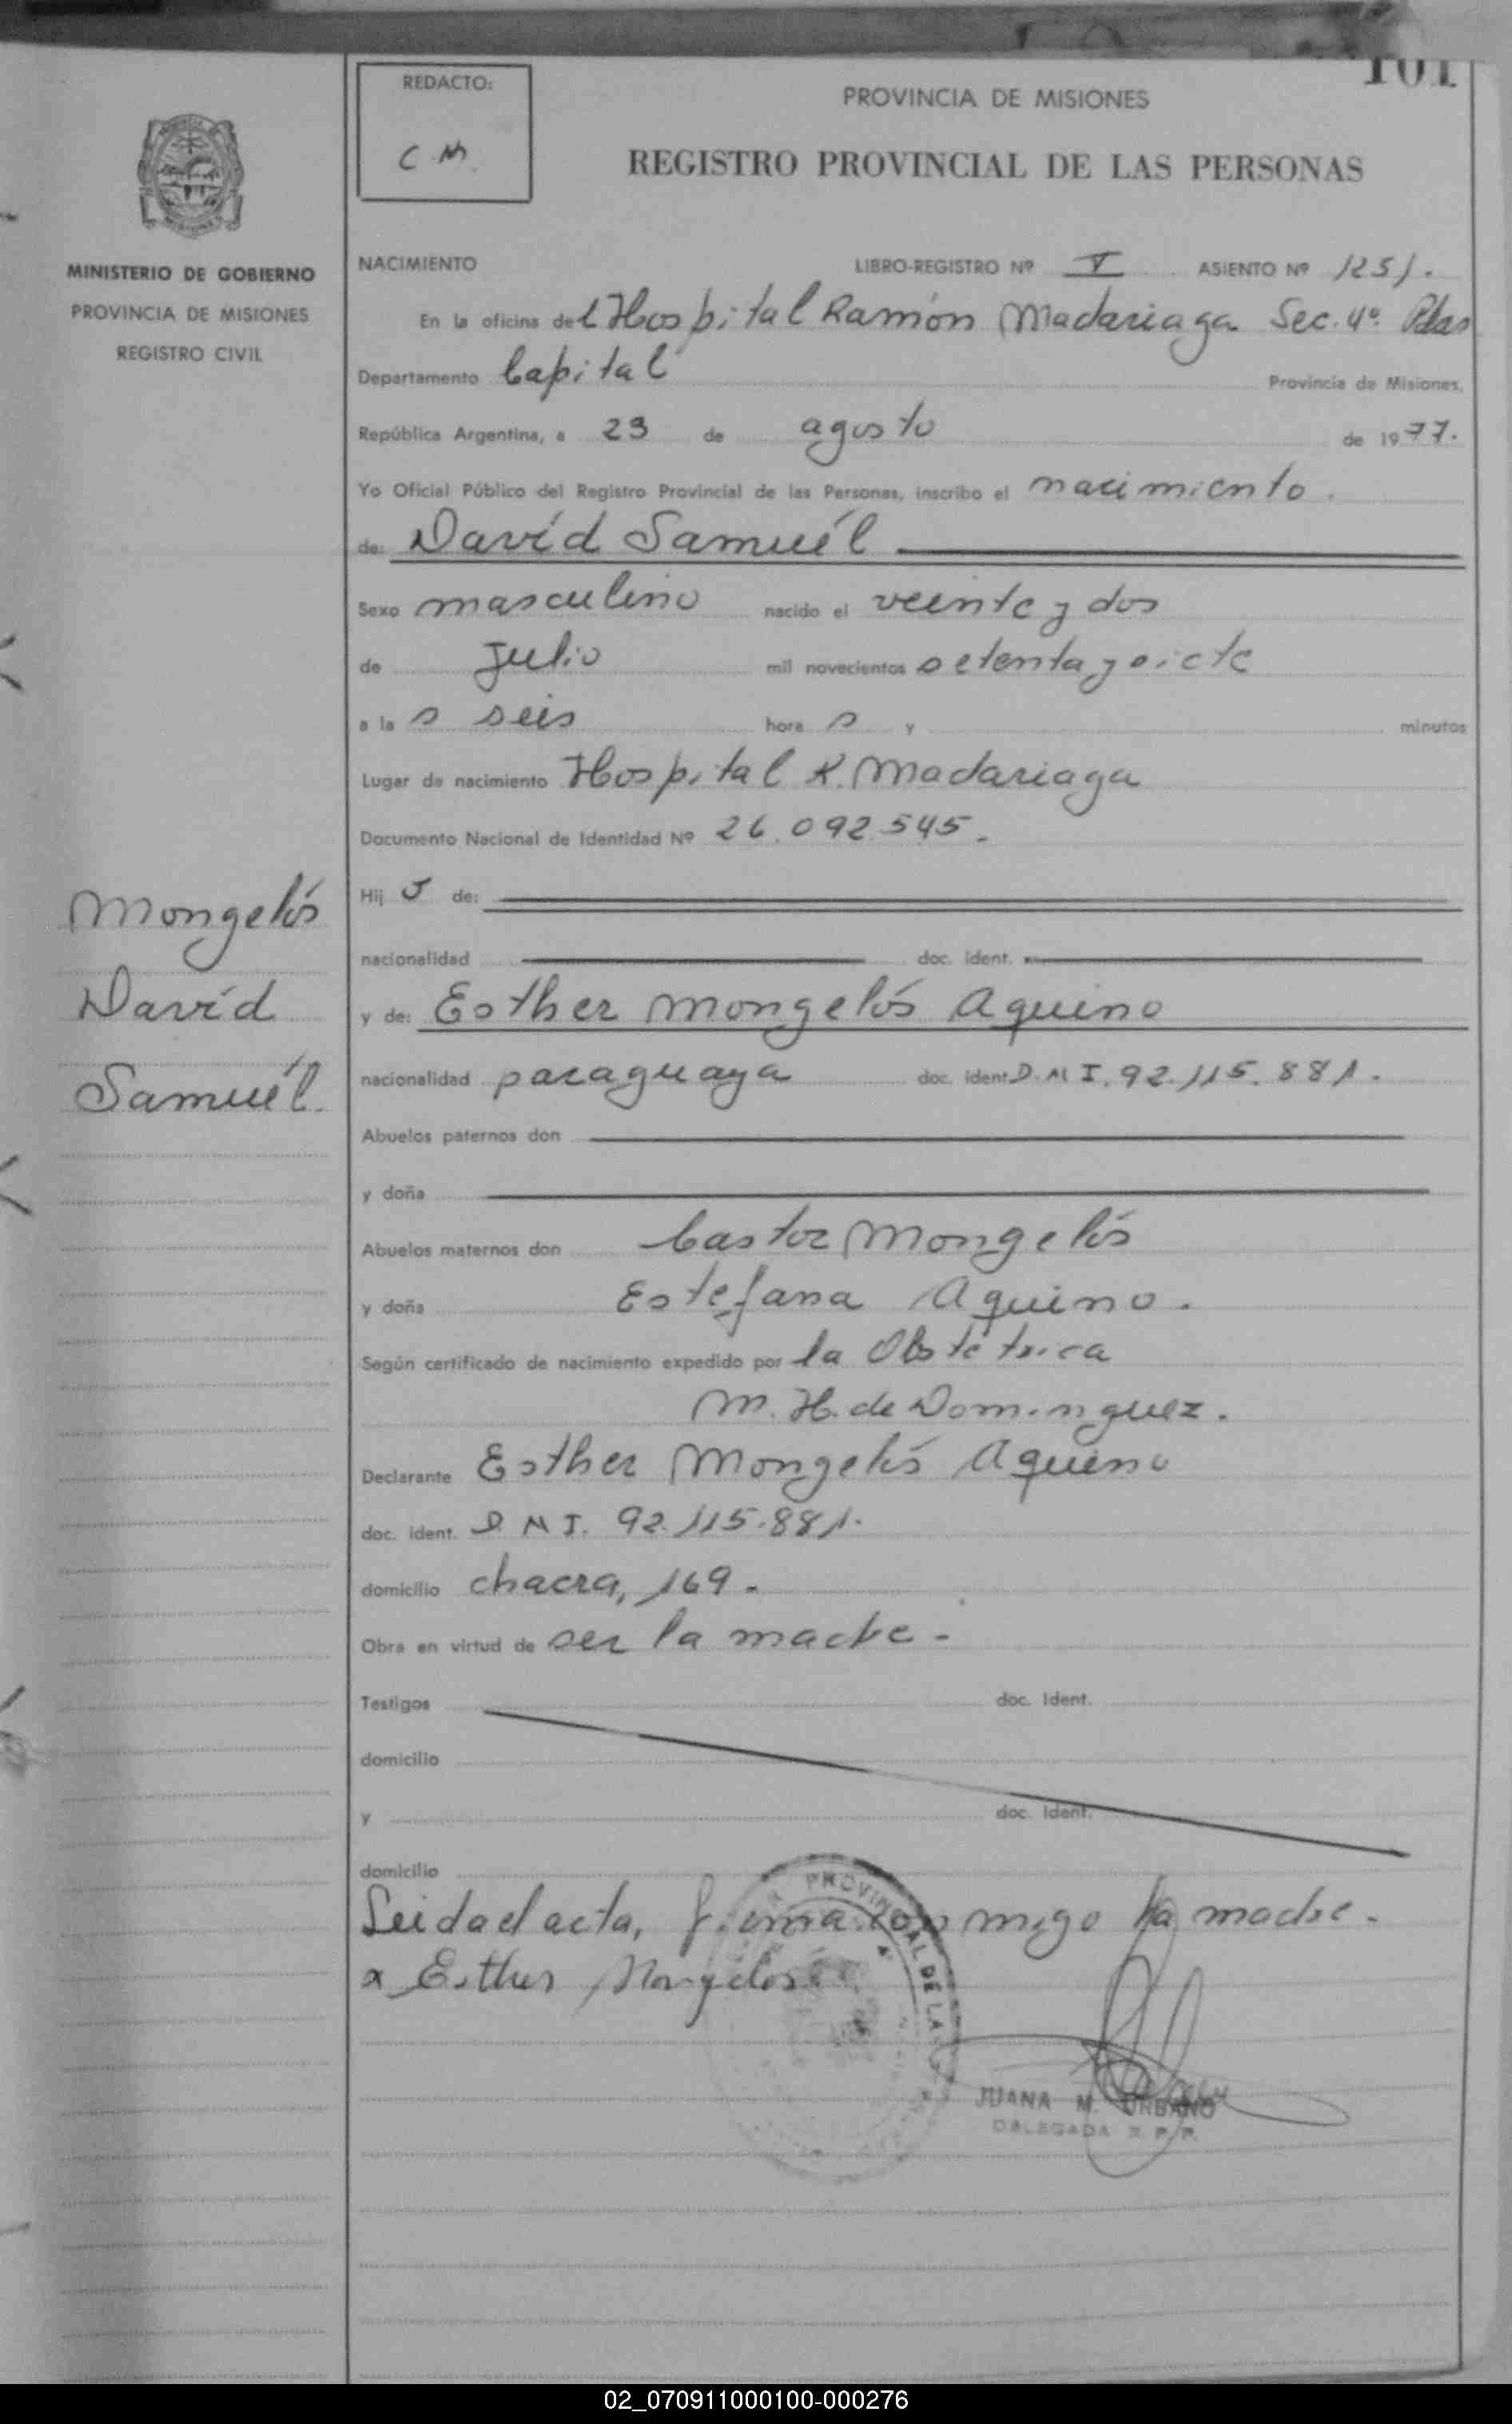 101
REDACTO:
C.M.
PROVINCIA DE MISIONES
REGISTRO PROVINCIAL DE LAS PERSONAS
MINISTERIO DE GOBIERNO
PROVINCIA DE MISIONES
REGISTRO CIVIL
NACIMIENTO LIBRO-REGISTRO Nº V ASIENTO Nº 1251.
En la oficina del Hospital Ramón Madariaga Sec. 4º Pdas
Departamento Capital Provincia de Misiones,
República Argentina, a 23 de agosto de 1977.
Yo Oficial Público del Registro Provincial de las Personas, inscribo el nacimiento.
de: David Samuél
Sexo masculino nacido el veinte y dos
de Julio mil novecientos setenta y siete
a las seis horas y minutos
Lugar de nacimiento Hospital R. Madariaga
Documento Nacional de Identidad Nº 26.092.545.
Hijo de:
nacionalidad doc. ident.
y de: Esther Mongelós Aquino
nacionalidad paraguaya doc. ident D.N.I. 92.115.881.
Abuelos paternos don
y doña
Abuelos maternos don Castor Mongelós
y doña Estefana Aquino.
Según certificado de nacimiento expedido por la Obstétrica
M. H. de Dominguez.
Declarante Esther Mongelós Aquino
doc. ident. D.N.I. 92.115.881.
domicilio chacra, 169.
Obra en virtud de ser la madre.
Testigos doc. ident.
domicilio
y doc. ident.
domicilio
Leida el acta, firma conmigo la madre.
x Esther Mongelos
Mongelós
David
Samuél.
PROVINCIAL DE LA
JUANA M. URBANO
DELEGADA R.P.P.
02_070911000100-000276